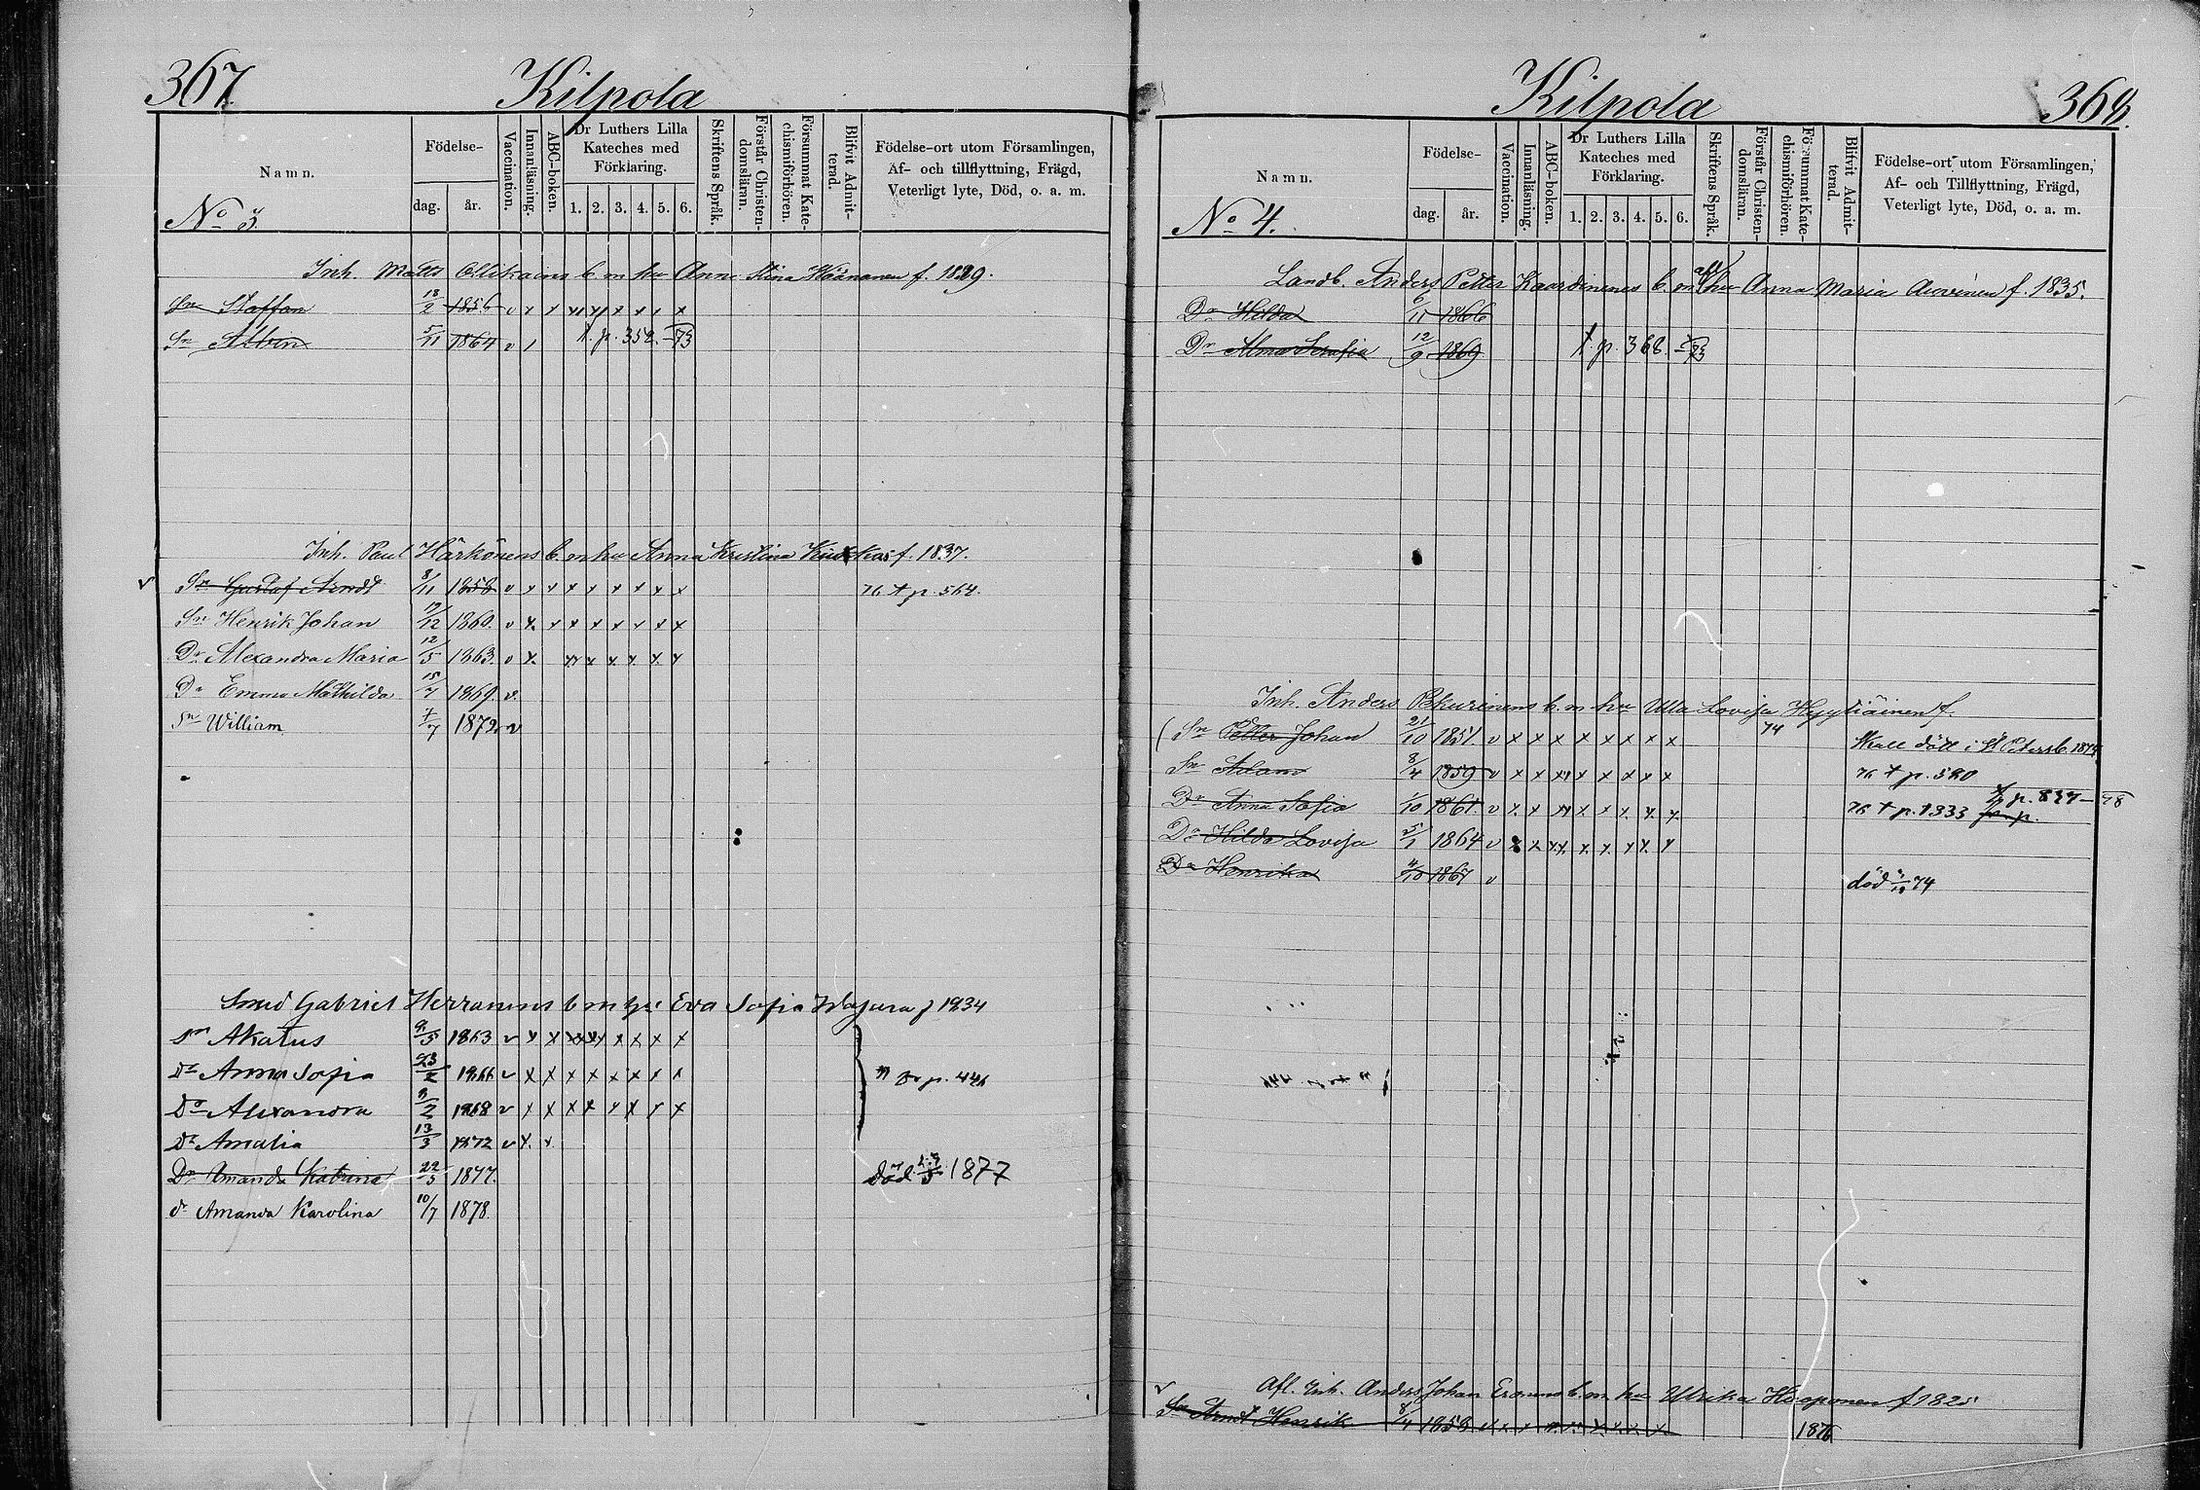 367.
Kilpola
Namn.
Födelse-
dag.
år.
Vaccination.
Innanläsning.
ABC-boken.
Dr Luthers Lilla
Kateches med
Förklaring.
1. 2. 3. 4. 5. 6.
Skriftens Språk.
Förstår Christen-
domsläran.
Försummat Kate-
chismiförhören.
Blifvit Admit-
terad.
Födelse-ort utom Församlingen,
Af- och tillflyttning, Frägd,
Veterligt lyte, Död, o. a. m.
No 3.
Inh. Matts Ollikainens b. m. hu Anna Stina f. 1829.
Sn Staffan 18/2 1856 v x x x x x x x x
Sn Albin 5/11 1864 v t. p. 352. 73
Inh. Paul Härkönens b. m hu Anna Kristina f. 1837.
v Sn Gustaf Arndt 8/11 1858 v x x x x x x x x 76 t p. 564.
Sn Henrik Johan 19/12 1860. v x x x x x x x x
Dr Alexandra Maria 12/5 1863. v x x x x x x x
Dr Emma Mathilda 15/7 1869. v.
Sn William 7/7 1872. v
Smed Gabriel Herranens b m hu Eva Sofia f 1834
Sn Akatus 9/5 1863 v x x x x x x x x
Dr Anna Sofia 1866 v x x x x x x x x p. 446
Dr Alexandra 9/2 1868 v x x x x x x x x
Dr Amalia 13/3 1872 v x x
Dr Amanda Katrina 22/5 1877. död 1877
dr Amanda Karolina 10/7 1878.
Kilpola
368.
Namn.
Födelse-
dag.
år.
Vaccination.
Innanläsning.
ABC-boken.
Dr Luthers Lilla
Kateches med
Förklaring.
1. 2. 3. 4. 5. 6.
Skriftens Språk.
Förstår Christen-
domsläran.
Försummat Kate-
chismiförhören.
Blifvit Admit-
terad.
Födelse-ort utom Församlingen,
Af- och Tillflyttning, Frägd,
Veterligt lyte, Död, o. a. m.
No 4.
Landb. Anders Petter Kaardinenes b. m. hu Anna Maria Auvinen f. 1835.
Dr Hilda 6/11 1866
Dr Alma Serafia 12/9 1869 t. p. 368.
Inh. Anders Pekurinens b. m hu Ulla Lovisa Hyytiäinen f.
Sn Petter Johan 21/10 1851. v x x x x x x x x 74 Skall dött i St Petersb. 1874
Sn Adam 8/4 1859 v x x x x x x x x 76 t p. 580
Dr Anna Sofia 1/10 1861. v x x x x x x x x 76 t p. 1333 p. 827 78
Dr Hilda Lovisa 5/1 1864 v x x x x x x x x
Dr Henrika 4/10 1867 v död 74
Afl. Inh. Anders Johan b. m hu Ulrika f 1825
v Sn Arndt Henrik 8/4 1858 v x x x x x x x x 1876